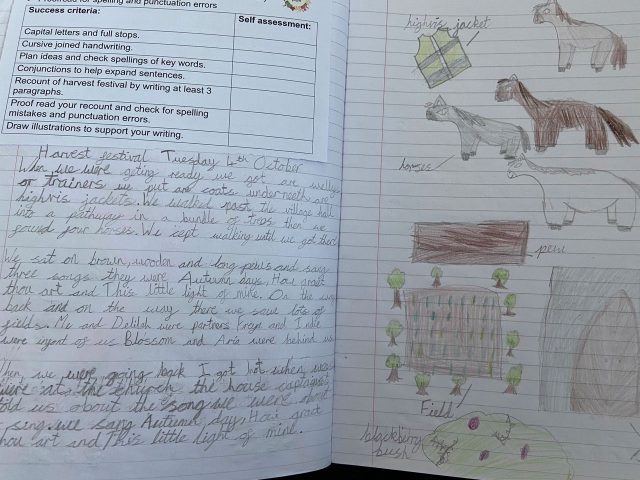 Proofread for spelling and punctuation errors
Success criteria: Self assessment:
Capital letters and full stops.
Cursive joined handwriting.
Plan ideas and check spellings of key words.
Conjunctions to help expand sentences.
Recount of harvest festival by writing at least 3
paragraphs.
Proof read your recount and check for spelling
mistakes and punctuation errors.
Draw illustrations to support your writing.
Harvest festival Tuesday 4th October
When we were geting ready we get are wellys
or trainers we put are coats underneath are
highvis jackets. We walked past the village hall
into a pathway in a bundle of trees then we
found four horses. We kept walking until we got there
We sat on brown, wooden and long pews and sang
three songs they were Autumn days, How great
thou art and This little light of mine. On the way
back and on the way there we saw lots of
fields. Me and Delilah were partners and Indie
were infront of us Blossom and Aria were behind us
When we were going back I got hot when we
were at the church the house captains
told us about the song we were about
sing. we sang Autumn day, How great
thou art and This little light of mine.
highvis jacket
horses
pew
Field
blackberry
bush